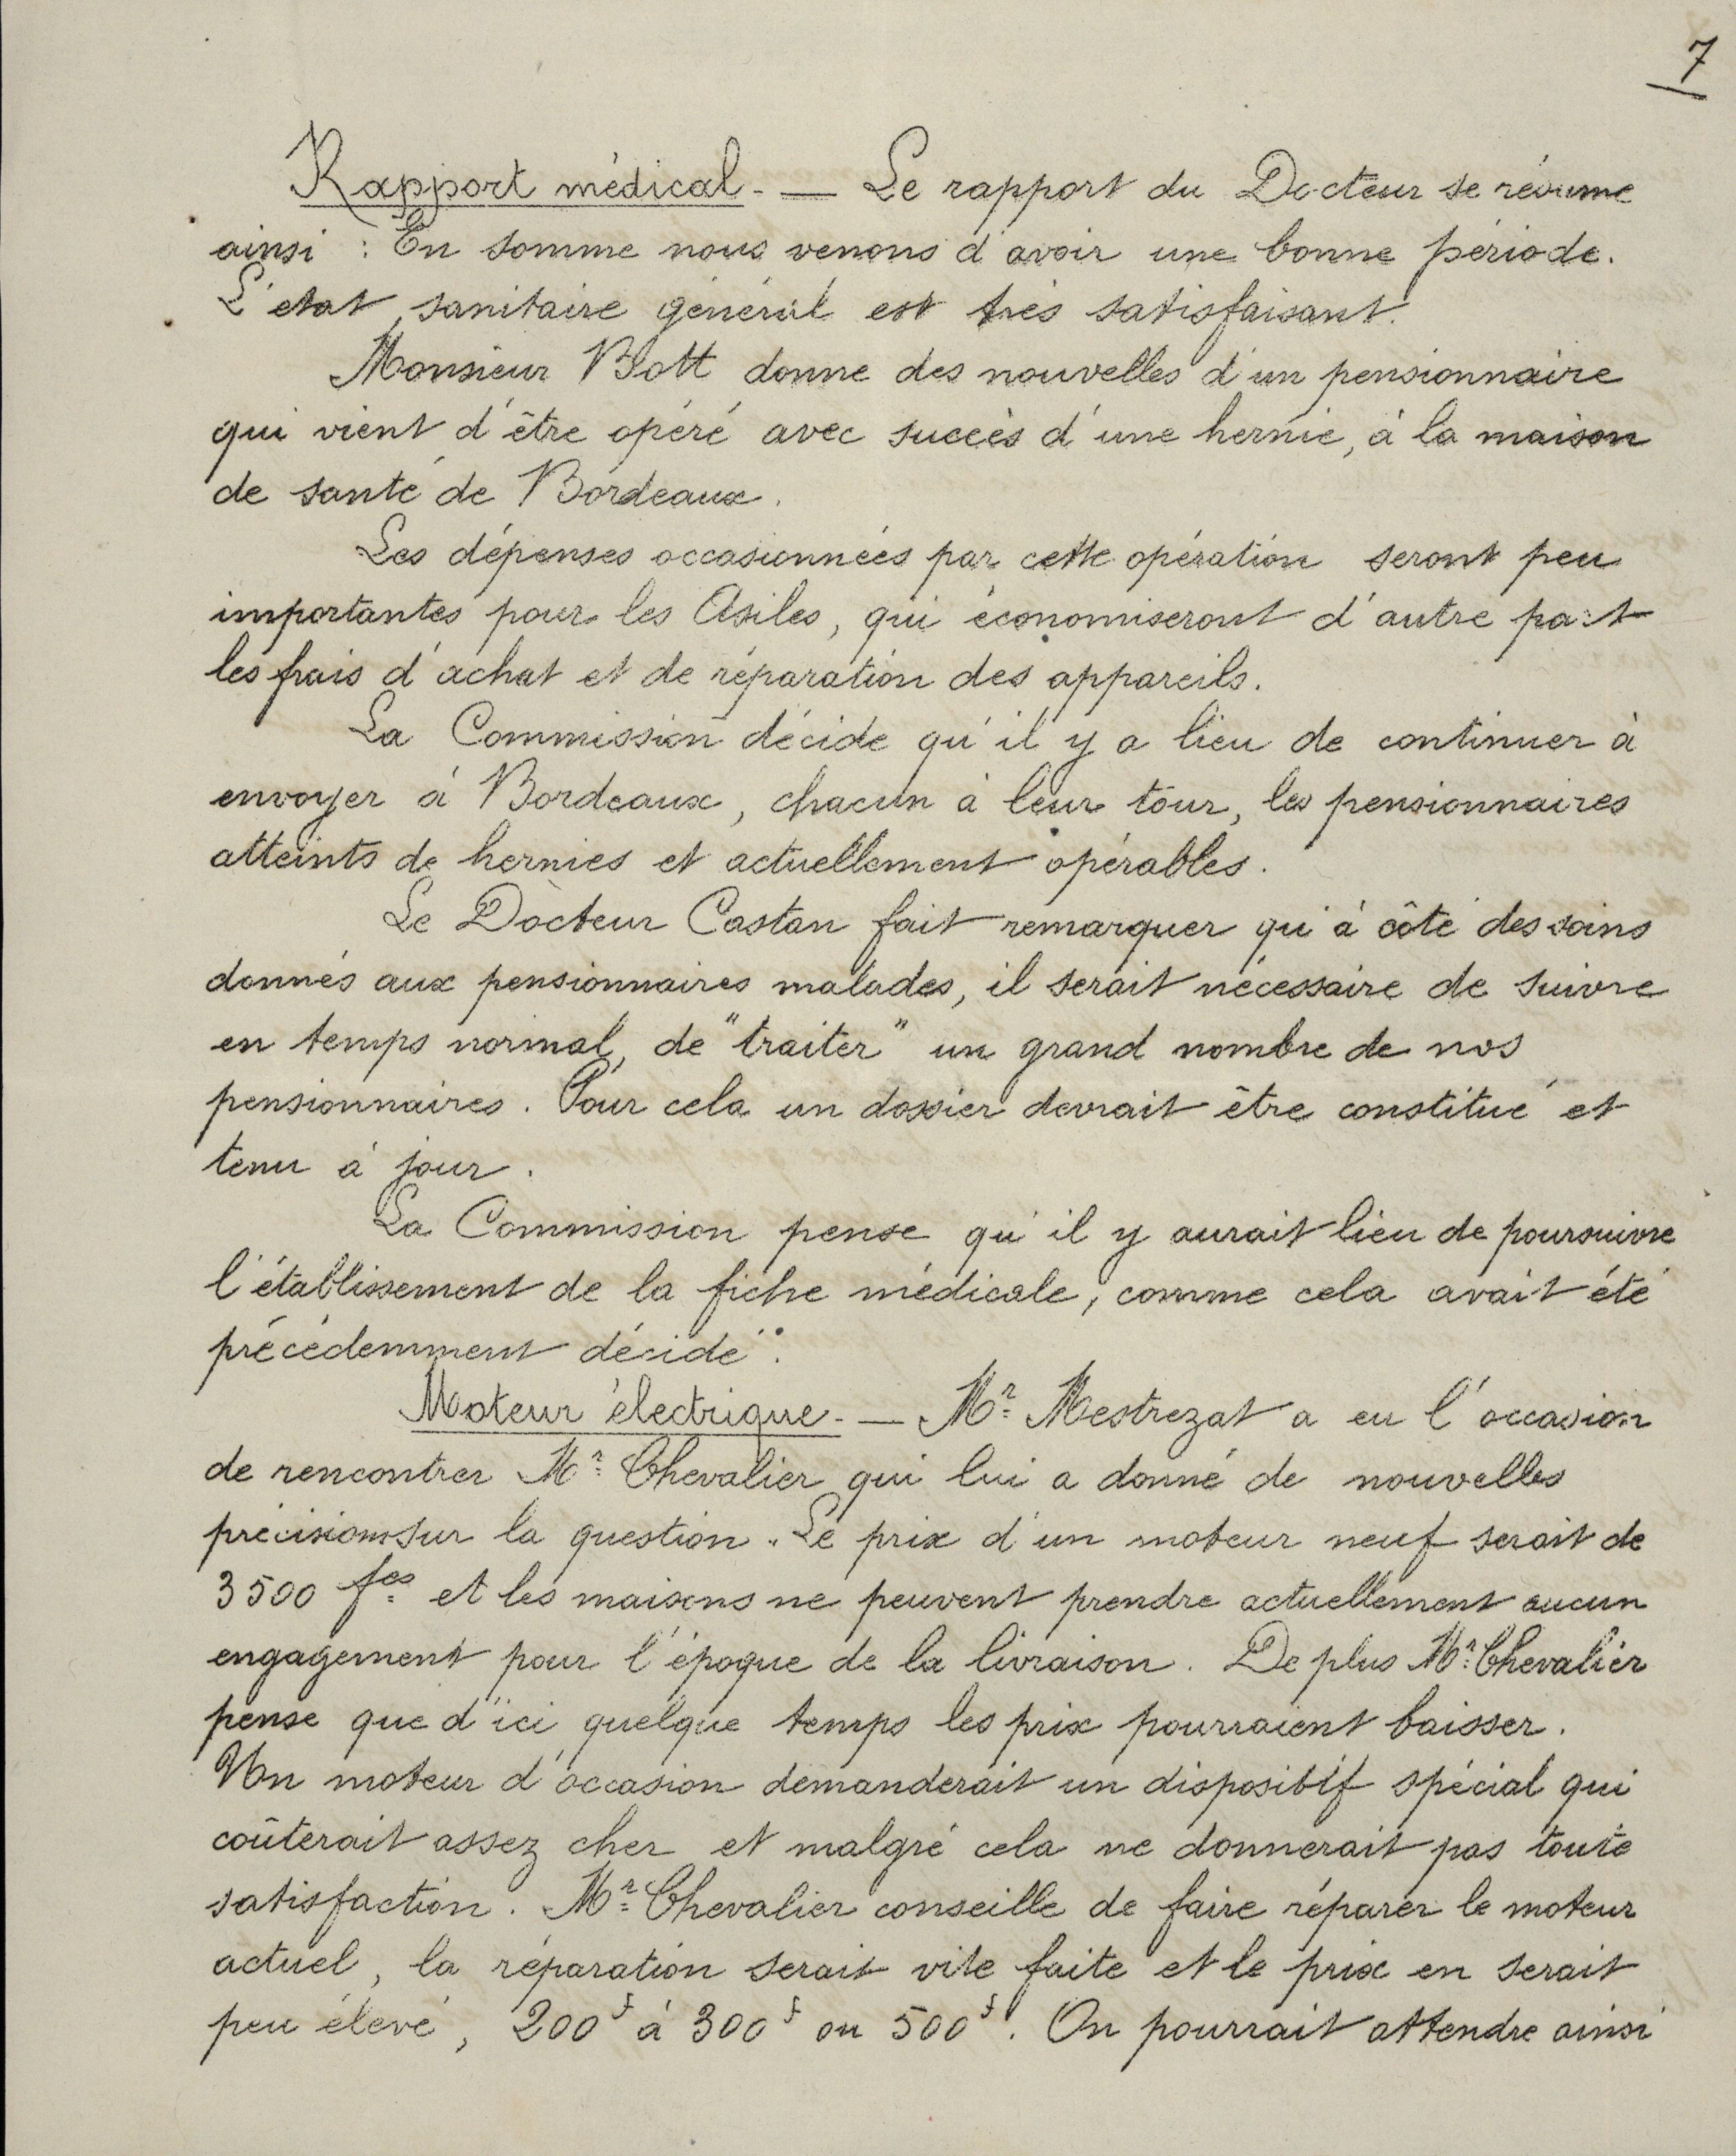 7
Rapport médical. — Le rapport du Docteur se résume
ainsi : En somme nous venons d'avoir une bonne période.
L'état sanitaire général est très satisfaisant.
Monsieur Bott donne des nouvelles d'un pensionnaire
qui vient d'être opéré avec succès d'une hernie, à la maison
de santé de Bordeaux.
Les dépenses occasionnées par cette opération seront peu
importantes pour les Asiles, qui économiseront d'autre part
les frais d'achat et de réparation des appareils.
La Commission décide qu'il y a lieu de continuer à
envoyer à Bordeaux, chacun à leur tour, les pensionnaires
atteints de hernies et actuellement opérables.
Le Docteur Castan fait remarquer qu'à côté des soins
donnés aux pensionnaires malades, il serait nécessaire de suivre
en temps normal, de "traiter" un grand nombre de nos
pensionnaires. Pour cela un dossier devrait être constitué et
tenu à jour.
La Commission pense qu'il y aurait lieu de poursuivre
l'établissement de la fiche médicale, comme cela avait été
précédemment décidé.
Moteur électrique. — Mr. Mestrezat a eu l'occasion
de rencontrer Mr. Chevalier qui lui a donné de nouvelles
précisions sur la question. Le prix d'un moteur neuf serait de
3500 fcs et les maisons ne peuvent prendre actuellement aucun
engagement pour l'époque de la livraison. De plus Mr. Chevalier
pense que d'ici quelque temps les prix pourraient baisser.
Un moteur d'occasion demanderait un dispositif spécial qui
coûterait assez cher et malgré cela ne donnerait pas toute
satisfaction. Mr. Chevalier conseille de faire réparer le moteur
actuel, la réparation serait vite faite et le prix en serait
peu élevé, 200f à 300f ou 500f. On pourrait attendre ainsi